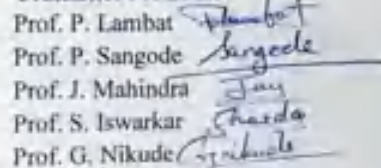 Prof. P. Lambat Plambat
Prof. P. Sangode Sangode
Prof. J. Mahindra Jay
Prof. S. Iswarkar Sharda
Prof. G. Nikude